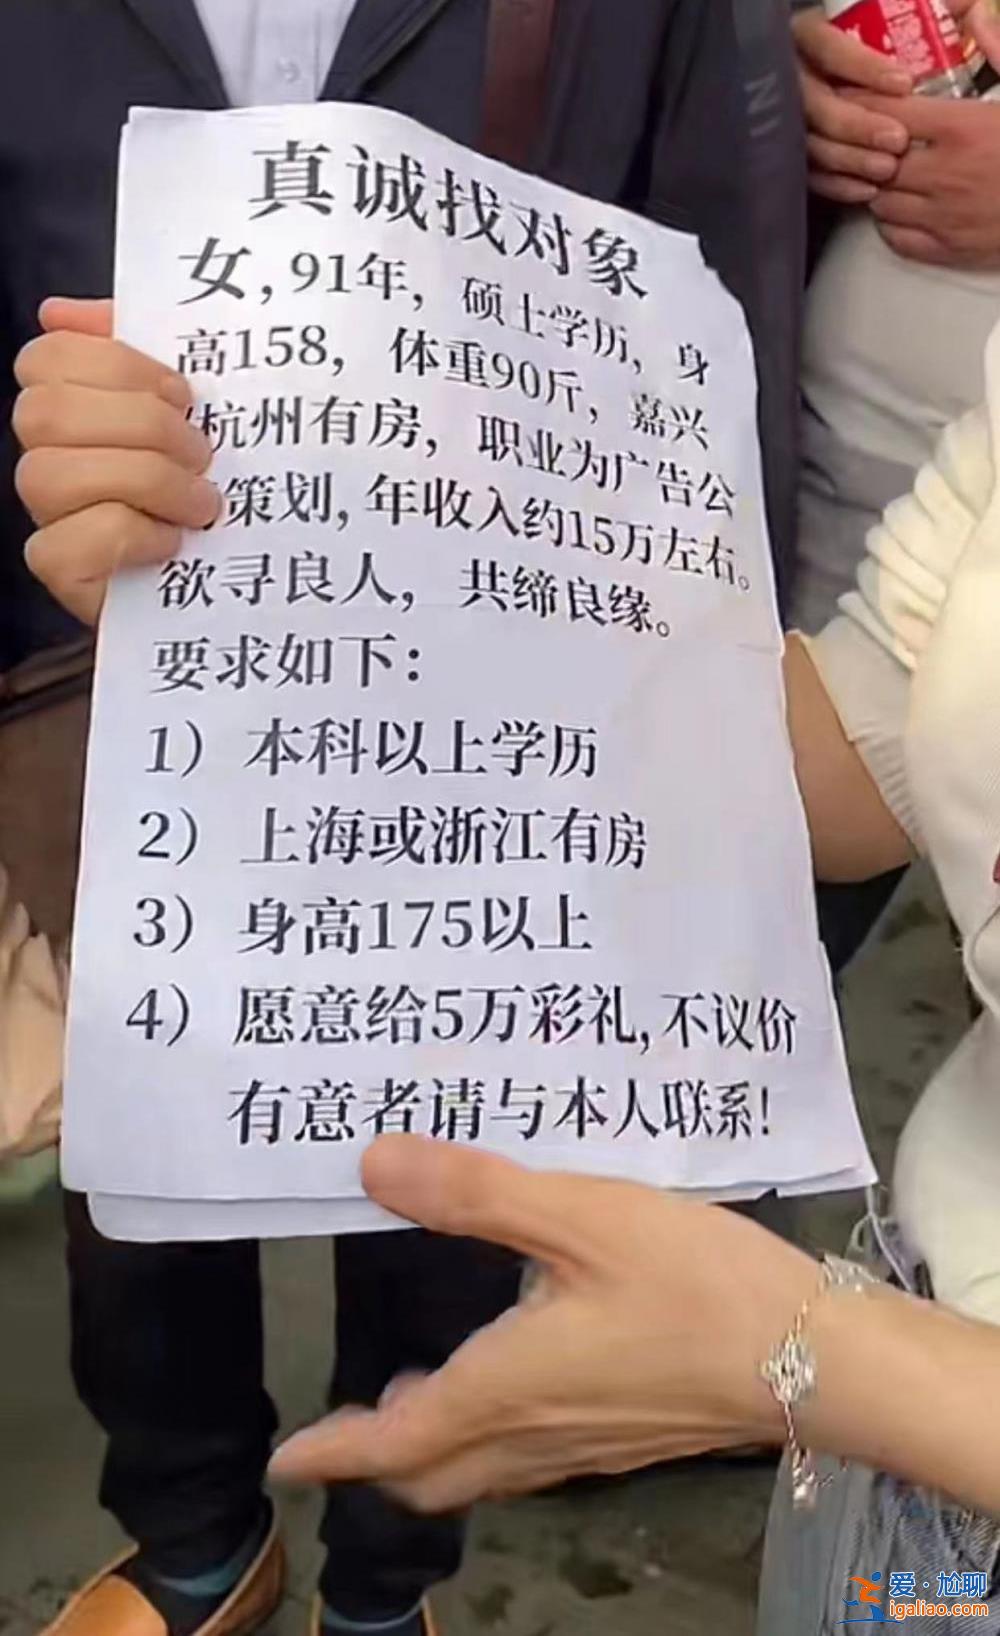 真诚找对象
女，91年，硕士学历，身
高158，体重90斤，嘉兴
杭州有房，职业为广告公
策划，年收入约15万左右。
欲寻良人，共缔良缘。
要求如下：
1）本科以上学历
2）上海或浙江有房
3）身高175以上
4）愿意给5万彩礼，不议价
有意者请与本人联系！
爱·尬聊
igaliao.com